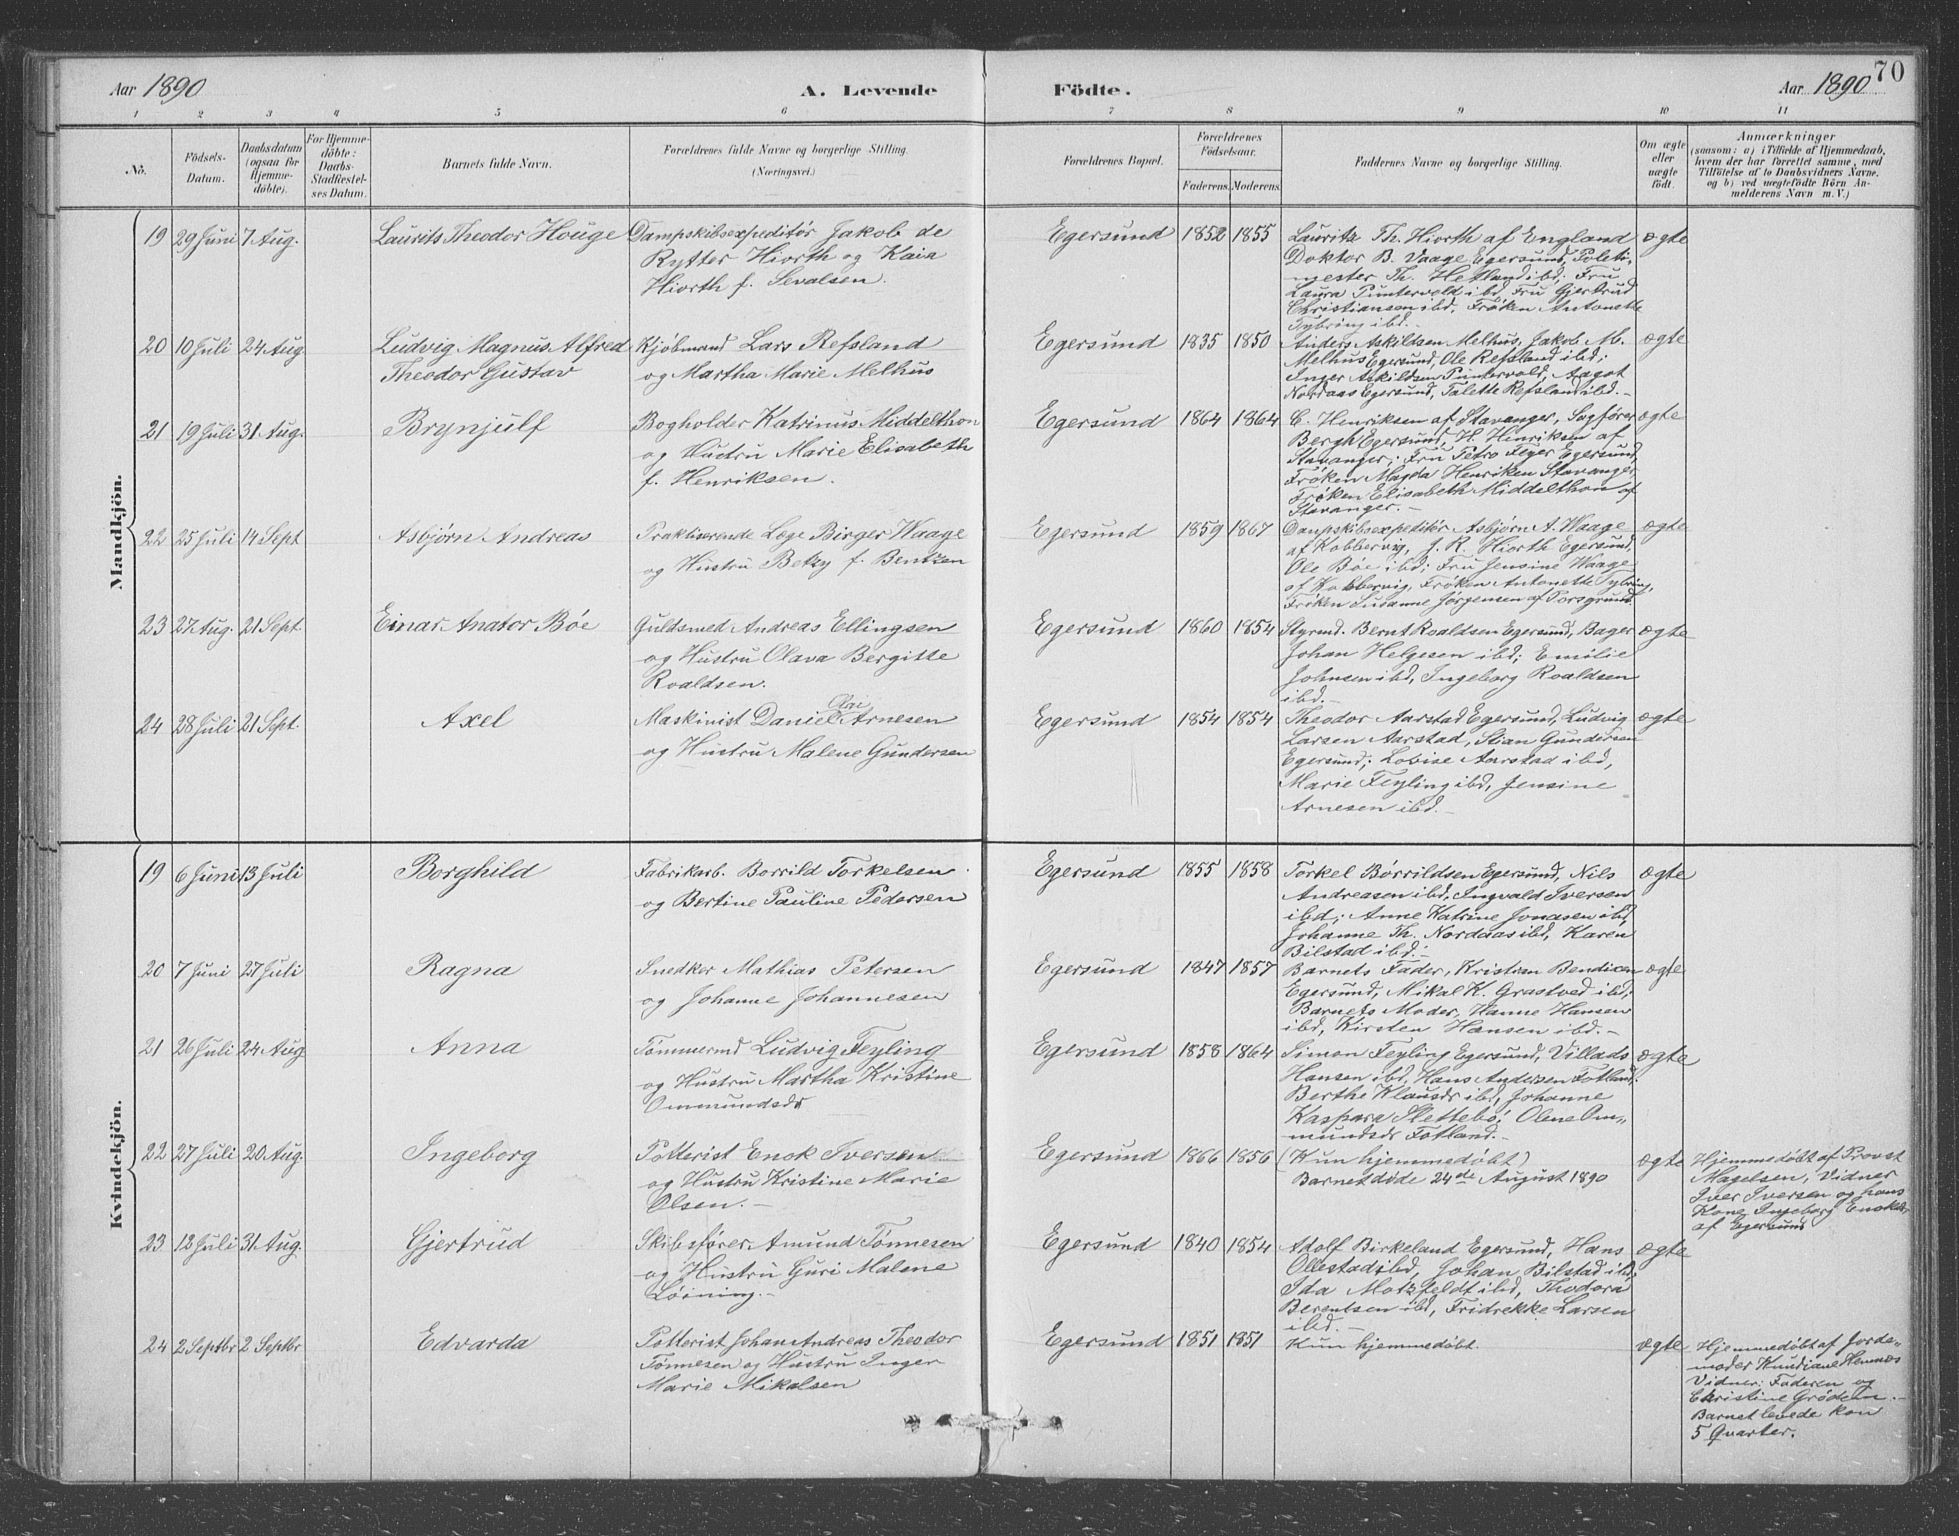 Aar 1890
A. Levende
Födte.
Aar 1890
70
1 2 3 4 5 6 7 8 9 10 11
No.
Födsels-
Datum.
Daabsdatum
(ogsaa for
Hjemme-
döbte).
For Hjemme-
döbte:
Daabs
Stadfæstel-
ses Datum.
Barnets fulde Navn.
Forældrenes fulde Navne og borgerlige Stilling.
(Næringsvei.)
Forældrenes Bopæl.
Forældrenes
Födselsaar.
Faderens.
Moderens.
Faddernes Navne og borgerlige Stilling.
Om ægte
eller
uægte
födt.
Anmærkninger
(saasom: a) i Tilfælde af Hjemmedaab,
hvem der har forrettet samme, med
Tilföielse af to Daabsvidners Navne,
og b) ved uægtefödte Börn An-
melderens Navn m. V.)
Mandkjön.
19 29 Juni 7 Aug. Laurits Theodor Houge
Dampskibsexpeditør Jakob de
Rytter Hiorth og Kaia
Hiorth f. Sevalsen.
Egersund 1852 1855
Lauritz Th. Hiorth af England
Doktor B. Vaage Egersund, Politi-
mester Th. Hetland ibd; Fru
Laura Puntervold ibd, Fru Gjertrud
Christiansen ibd, Frøken Antonette
Tybring ibd.-
ægte
20 10 Juli 24 Aug. Ludvig Magnus Alfred
Theodor Gustav
Kjøbmand Lars Refsland
og Martha Marie Melhus
Egersund 1835 1850
Anders Askildsen Melhus, Jakob M.
Melhus Egersund, Ole Refsland ibd;
Inger Askildsen Puntervold, Aagot
Nordaas Egersund, Talette Refsland ibd.-
ægte
21 19 Juli 31 Aug. Brynjulf
Bogholder Katrinus Middelthon
og Hustru Marie Elisabeth
f. Henriksen.
Egersund 1864 1864
C. Henriksen af Stavanger, Sagfører
Bergh Egersund, H. Hinriksen af
Stavanger; Fru Petro Feyer Egersund,
Frøken Magda Henriken Stavanger
Frøken Elisabeth Middelthon af
Stavanger.-
ægte
22 25 Juli 14 Sept Asbjørn Andreas
Praktiserende Læge Birger Waage
og Hustru Betzy f. Bentzen
Egersund 1859 1867
Dampskibsexpeditør Asbjørn A. Waage
af Kobbervig, J. R. Hiorth Egersund,
Ole Bøe ibd; Fru Jensine Waage
af Kobbervig, Frøken Antonette Tybring,
Frøken Susanne Jørgensen af Porsgrund.
ægte
23 27 Aug. 21 Sept. Einar Anator Bøe
Guldsmed Andreas Ellingsen
og Hustru Olava Bergitte
Roaldsen.
Egersund 1860 1854
Styrmd. Bernt Roaldsen Egersund, Bager
Johan Helgesen ibd; Emilie
Johnsen ibd, Ingeborg Roaldsen
ibd.-
ægte
24 28 Juli 21 Sept. Axel
Olai
Maskinist Daniel Arnesen
og Hustru Malene Gundersen
Egersund 1854 1854
Theodor Aarstad Egersund, Ludvig
Larsen Aarstad, Stian Gundersen
Egersund; Lovise Aarstad ibd,
Marie Feyling ibd, Jensine
Arnesen ibd.-
ægte
Kvindekjön.
19 6 Juni 13 Juli Borghild
Fabrikarb. Borrild Torkelsen
og Bertine Pauline Pedersen
Egersund 1855 1858
Torkel Børrildsen Egersund, Nils
Andreasen ibd, Ingvald Iversen
ibd; Anne Katrine Jonasen ibd,
Johanne Th. Nordaas ibd, Karen
Bilstad ibd.-
ægte
20 7 Juni 27 Juli Ragna
Snedker Mathias Petersen
og Johanne Johannesen
Egersund 1847 1857
Barnets Fader, Kristian Bendixen
Egersund, Mikal K. Grastved ibd;
Barnets Moder, Hanne Hansen
ibd, Kirsten Hansen ibd.-
ægte
21 26 Juli 24 Aug Anna
Tømmermd Ludvig Feyling
og Hustru Martha Kristine
Ommundsdr
Egersund 1858 1864
Simon Feyling Egersund, Villads
Hansen ibd, Hans Andersen Fotland;
Berthe Klausdr ibd, Johanne
Kaspara Slettebø, Olene Om-
mundsdr Fotland.-
ægte
22 27 Juli 20 Aug. Ingeborg
Potterist Enok Iversen
og Hustru Kristine Marie
Olsen.-
Egersund 1866 1856
(Kun hjemmedøbt)
Barnet døde 24de August 1890
ægte
Hjemmedøbt af Provst
Magelsen, Vidner
Iver Iversen og hans
Kone Ingeborg
af Egersund
23 12 Juli 31 Aug. Gjertrud
Skibsfører Amund Tønnesen
og Hustru Guri Malene
Løining.-
Egersund 1840 1854
Adolf Birkeland Egersund, Hans
Ollestad ibd, Johan Bilstad ibd;
Ida Motzfeldt ibd, Thodora
Berentsen ibd, Fridrekke Larsen
ibd.-
ægte
24 2 Septbr 2 Septbr Edvarda
Potterist Johan Andreas Theodor
Tønnesen og Hustru Inger
Marie Mikalsen
Egersund 1851 1851
Kun hjemmedøbt.
ægte
Hjemmedøbt af Jorde-
moder Knudiane
Vidner: Faderen og
Christine Grødem.-
Barnet levede kon
5 Quarter.